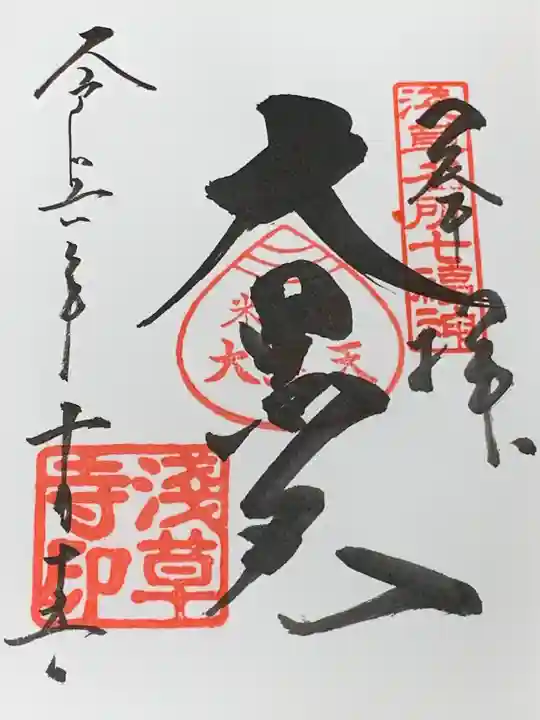 奉拝
浅草名所七福神
大黒天
大黒天
令和六年十月十五日
浅草寺印